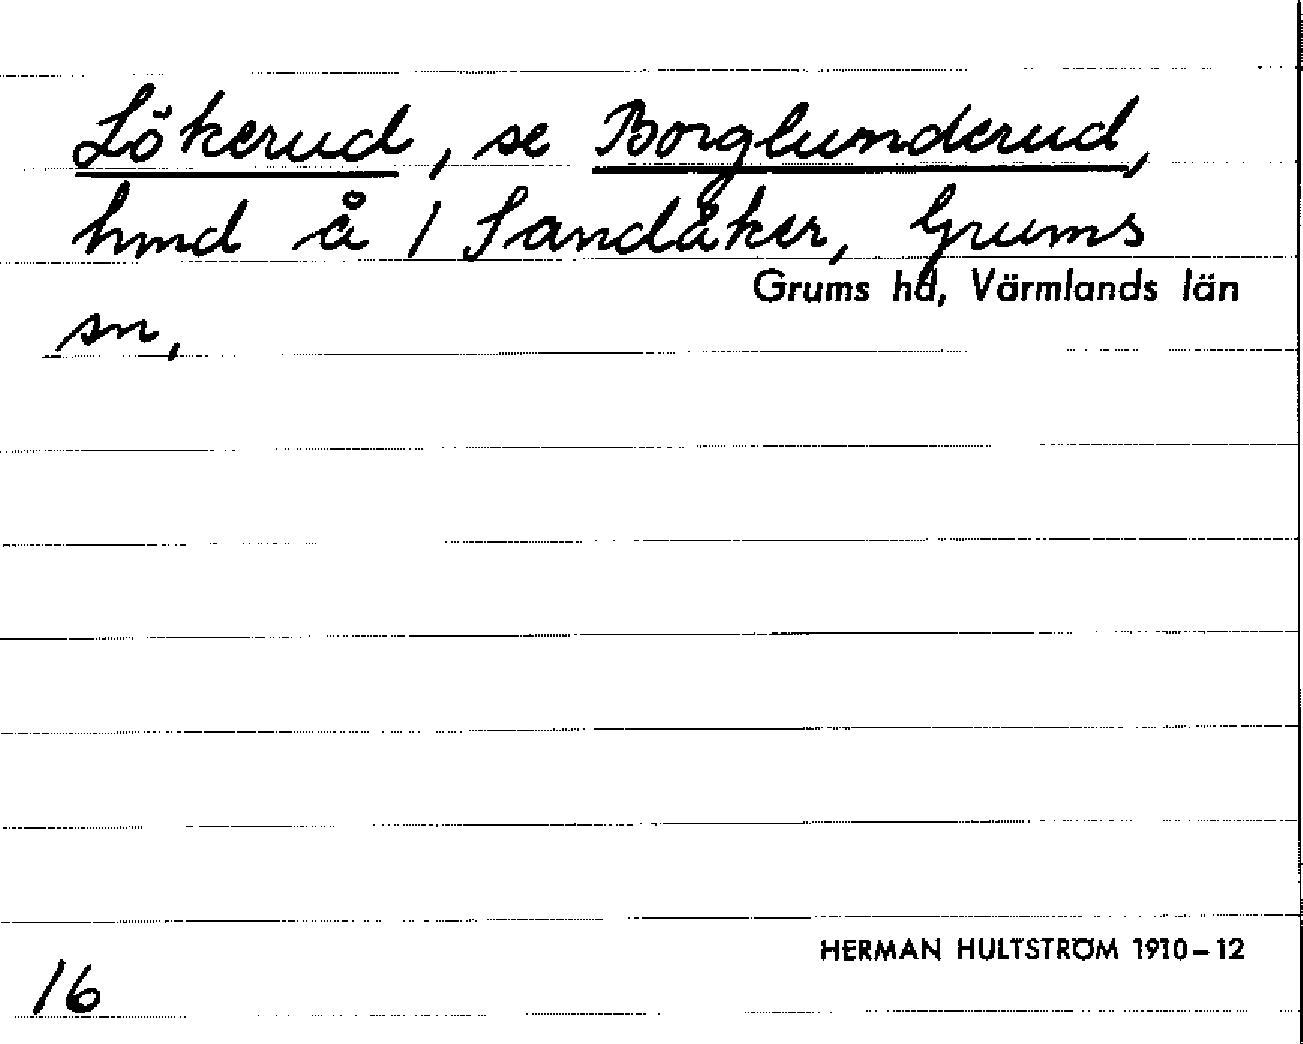 Lökerud, se Borglunderud,
hmd å 1 Sandåker, Grums
Grums hd, Värmlands län
sn,
HERMAN HULTSTRÖM 1910–12
16